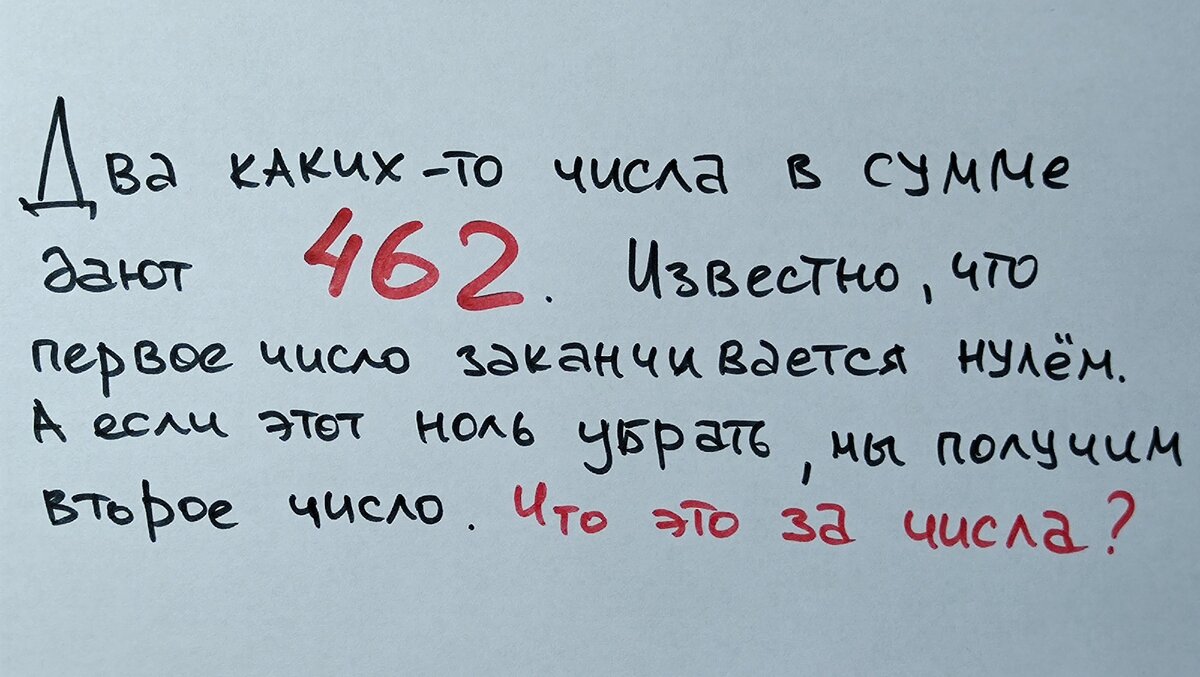 Два каких-то числа в сумме
дают 462. Известно, что
первое число заканчивается нулём.
А если этот ноль убрать, мы получим
второе число. Что это за числа?